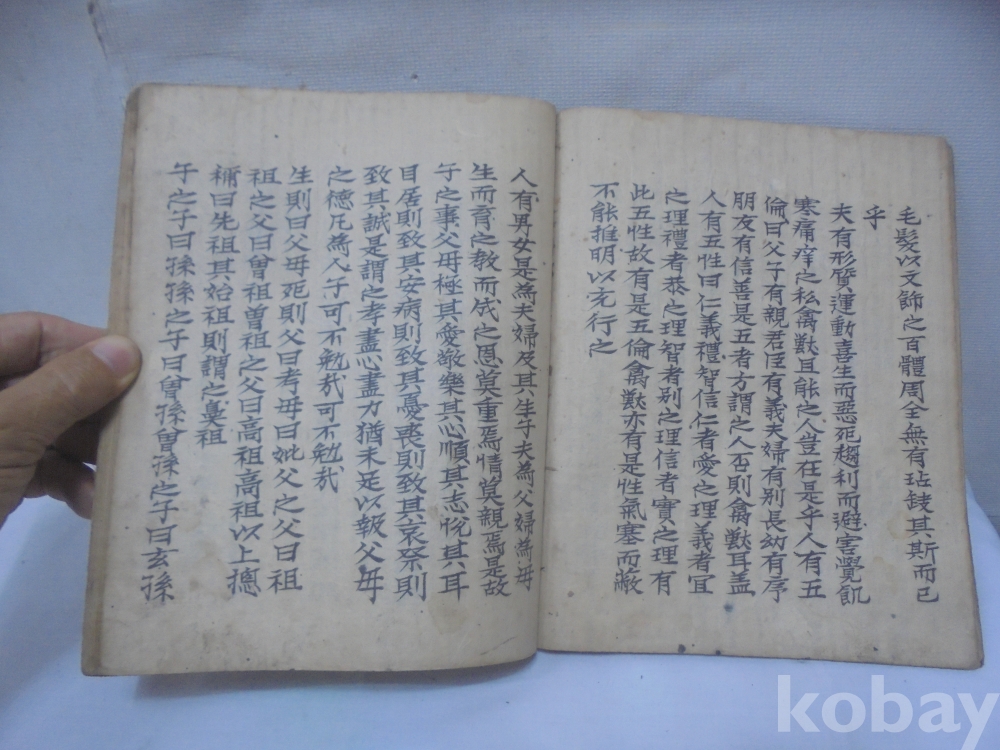 毛髮以文飾之百體周全無有玷缺其斯而已
乎
夫有形質運動喜生而惡死趨利而避害覺飢
寒痛痒之私禽獸且能之人豈在是乎人有五
倫曰父子有親君臣有義夫婦有別長幼有序
朋友有信善是五者方謂之人否則禽獸耳盖
人有五性曰仁義禮智信仁者愛之理義者宜
之理禮者恭之理智者別之理信者實之理有
此五性故有是五倫禽獸亦有是性氣塞而蔽
不能推明以充行之
人有男女是為夫婦及其生子夫為父婦為母
生而育之教而成之恩莫重焉情莫親焉是故
子之事父母極其愛敬樂其心順其志悅其耳
目居則致其安病則致其憂喪則致其哀祭則
致其誠是謂之孝盡心盡力猶未足以報父母
之德凡為人子可不勉哉可不勉哉
生則曰父母死則父曰考母曰妣父之父曰祖
祖之父曰曾祖曾祖之父曰高祖高祖以上摠
稱曰先祖其始祖則謂之鼻祖
子之子曰孫孫之子曰曾孫曾孫之子曰玄孫
kobay